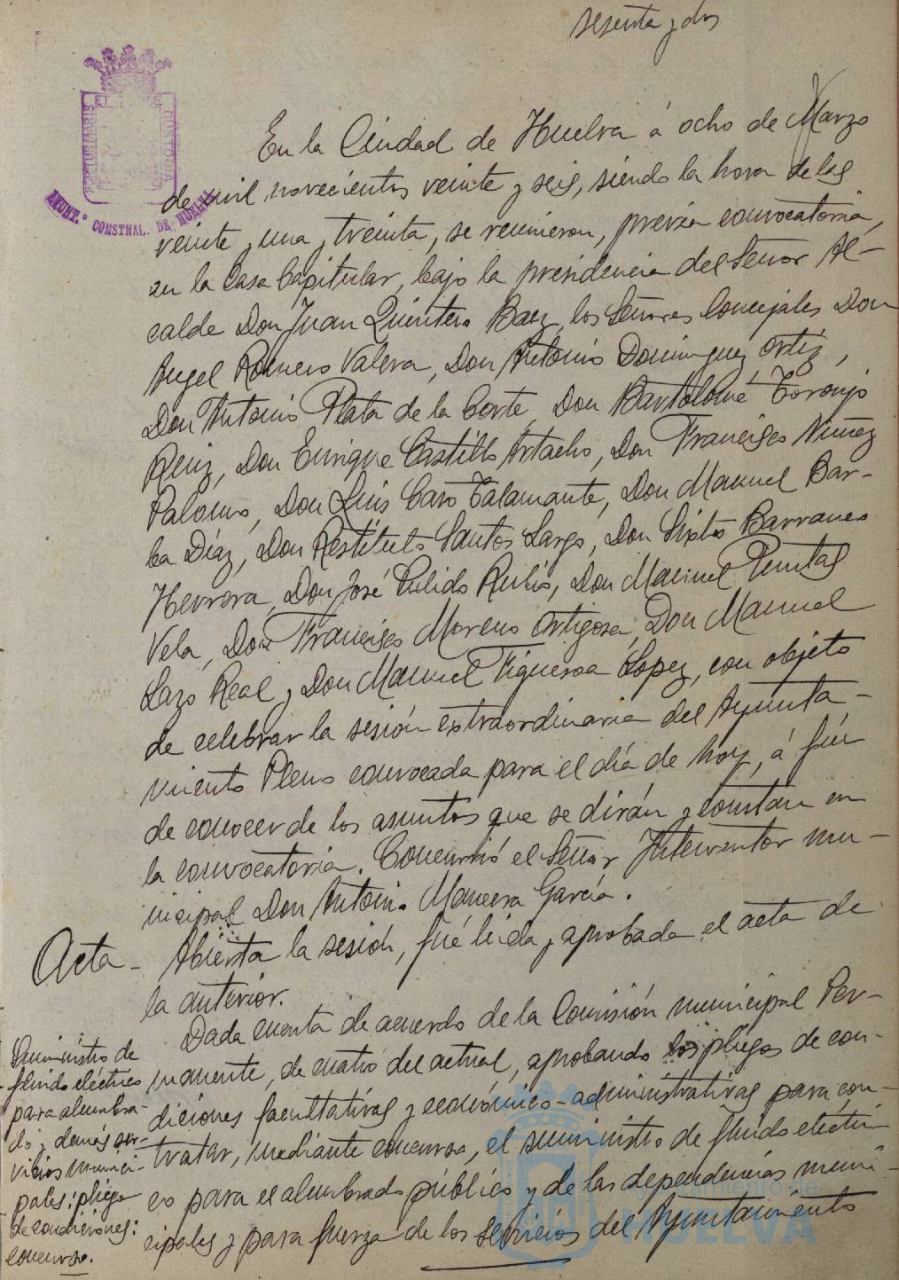 sesenta y dos
PORTUS MARIS ET TERRE CUSTODIA
AYUNT.º CONSTNAL. DE HUELVA
En la Ciudad de Huelva á ocho de Marzo
de mil novecientos veinte y seis, siendo la hora de las
veinte y una y treinta, se reunieron, previa convocatoria,
en la Casa Capitular, bajo la presidencia del Señor Al-
calde Don Juan Quintero Baez, los Señores Concejales Don
Angel Romero Valera, Don Antonio Dominguez Ortiz,
Don Antonio Plata de la Corte, Don Bartolomé Toronjo
Reiz, Don Enrique Castillo Artacho, Don Francisco Nuñez
Palomo, Don Luis Caro Talamante, Don Manuel Bar-
ba Díaz, Don Restituto Santos Largo, Don Sixto Barranco
Herrera, Don José Pulido Rubio, Don Manuel Puntas
Vela, Don Francisco Moreno Ortigosa, Don Manuel
Lazo Real y Don Manuel Figueroa Lopez, con objeto
de celebrar la sesión extraordinaria del Ayunta-
miento Pleno convocada para el día de hoy, á fin
de conocer de los asuntos que se dirán y constan en
la convocatoria. Concurrió el Señor Interventor mu-
nicipal Don Antonio Mancera García.
Acta-
Abierta la sesión, fué leida y aprobada el acta de
la anterior.
Suministro de
fluido eléctrico
para alumbra-
do y demás ser-
vicios munici-
pales: pliego
de condiciones:
concurso.
Dada cuenta de acuerdo de la Comisión municipal Per-
manente, de cuatro del actual, aprobando los pliegos de con-
diciones facultativas y económico-administrativas para con-
tratar, mediante concurso, el suministro de fluido eléctri-
co para el alumbrado público y de las dependencias muni-
cipales y para fuerza de los servicios del Ayuntamiento
Ayuntamiento de
HUELVA